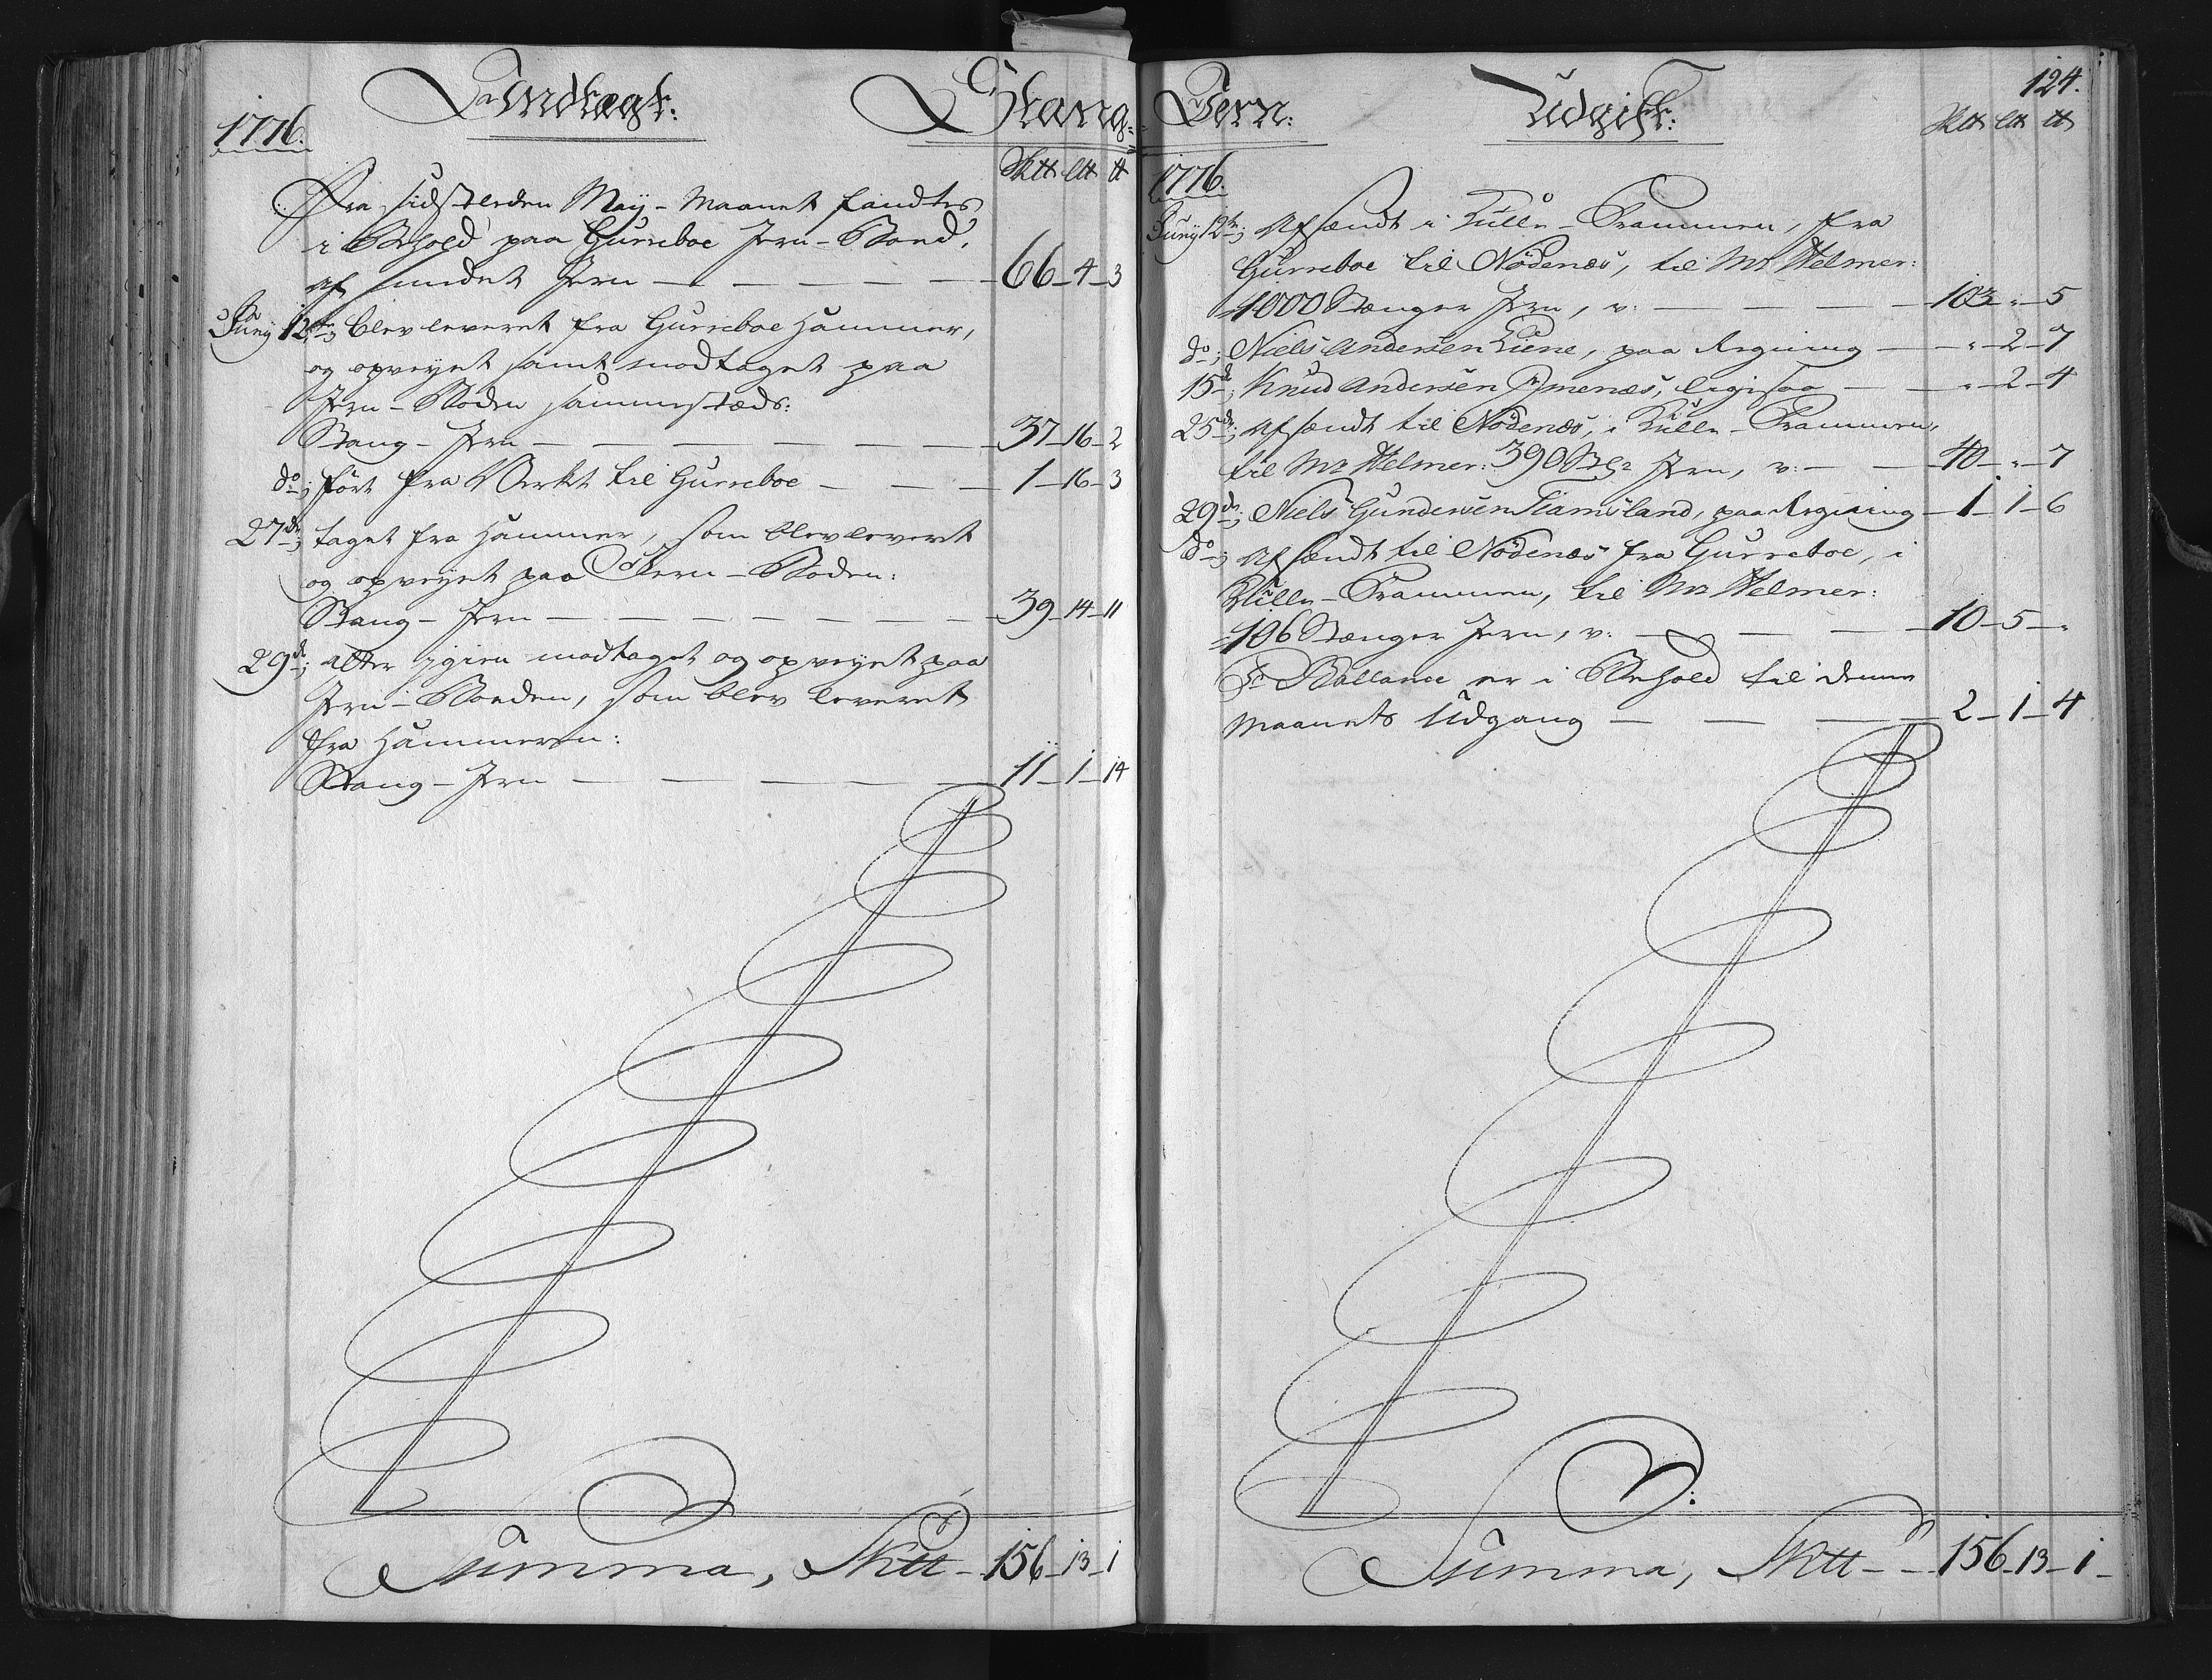 Indtægt:
Stang-
1776.
Sk℔ L℔ ℔
Fra sidstleden Maij-Maanet fandtes
i Behold paa Gurreboe Jern-Boed,
af smedet Jern 66-4-3
Junÿ 12te; blev leveret fra Gurreboe Hammer,
og opveyet samt modtaget paa
Jern-Boden sammestæds:
Stang-Jern 37-16-2
do; ført fra Verket til Gurreboe 1-16-3
27de; taget fra Hammer, som blev levert
og opveyet paa Jern-Boden:
Stang-Jern 39-14-11
29de; atter igien modtaget og opveyet paa
Jern-Boeden, som blev leveret
fra Hammeren:
Stang-Jern 11-1-14
Summa, Sk℔ 156-13-1
Jern:
Udgift:
124.
Sk℔ L℔ ℔
1776.
Junÿ 12te; Afsendt i Kulle-Prammen, fra
Gurreboe til Nødenæs, til Mr Helmer:
1000 Stænger Jern, v: 103 " 5
do; Niels Andersen Liene, paa Regning " 2-7
15de; Knud Andersen Ømenæs, ligesaa " 2-4
25de; afsendt til Nødenæs, i Kulle-Prammen,
til Mr Helmer: 390 Stgr Jern, v: 40 " 7
29de; Niels Gundersen Tiamsland, paa Regning 1-1-6
do; afsendt til Nødenæs fra Gurreboe, i
Kulle-Prammen, til Mr Helmer:
106 Stænger Jern, v: 10-5-"
Pr Ballance er i Behold til denne
Maanets Udgang 2-1-4
Summa, Sk℔ 156-13-1